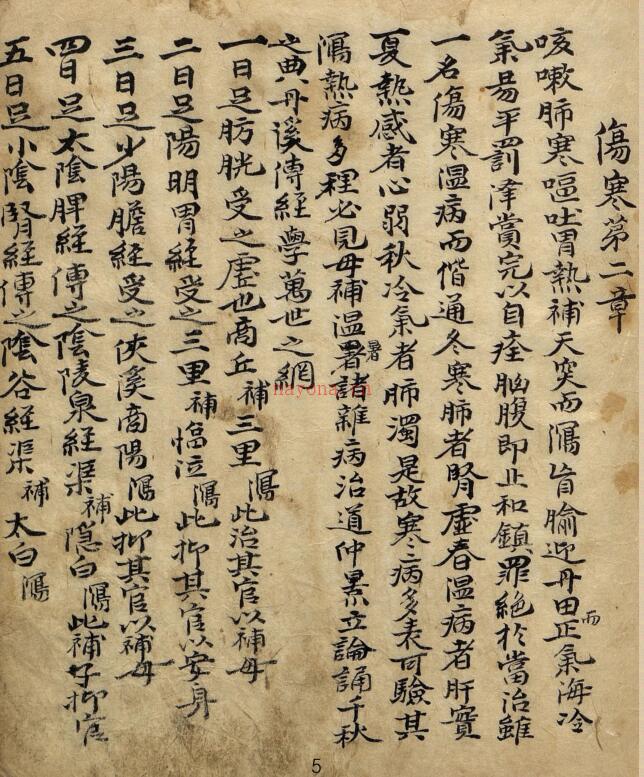 傷寒第二章
咳嗽肺寒嘔吐胃熱補天突而瀉肓腧迎丹田正氣海冷
氣易平罰澤賞完以自痊胸腹即止和鎮罪絕於當治雖
一名傷寒溫病而偕通冬寒肺者腎虛春溫病者肝實
夏熱感者心弱秋冷氣者肺濁是故寒病多表可驗其
瀉熱病多裡必見母補溫暑諸雜病治道仲景立論誦千秋
之典丹溪傳經學萬世之網
一日足肪胱受之虛也商丘補三里瀉此治其官以補母
二日足陽明胃經受之三里補臨泣瀉此抑其官以安身
三日足少陽膽經受之俠溪商陽瀉此抑其官以補母
四日足太陰脾經傳之陰陵泉經渠補隱白瀉此補子抑官
五日足小陰腎經傳之陰谷經渠補太白瀉
5